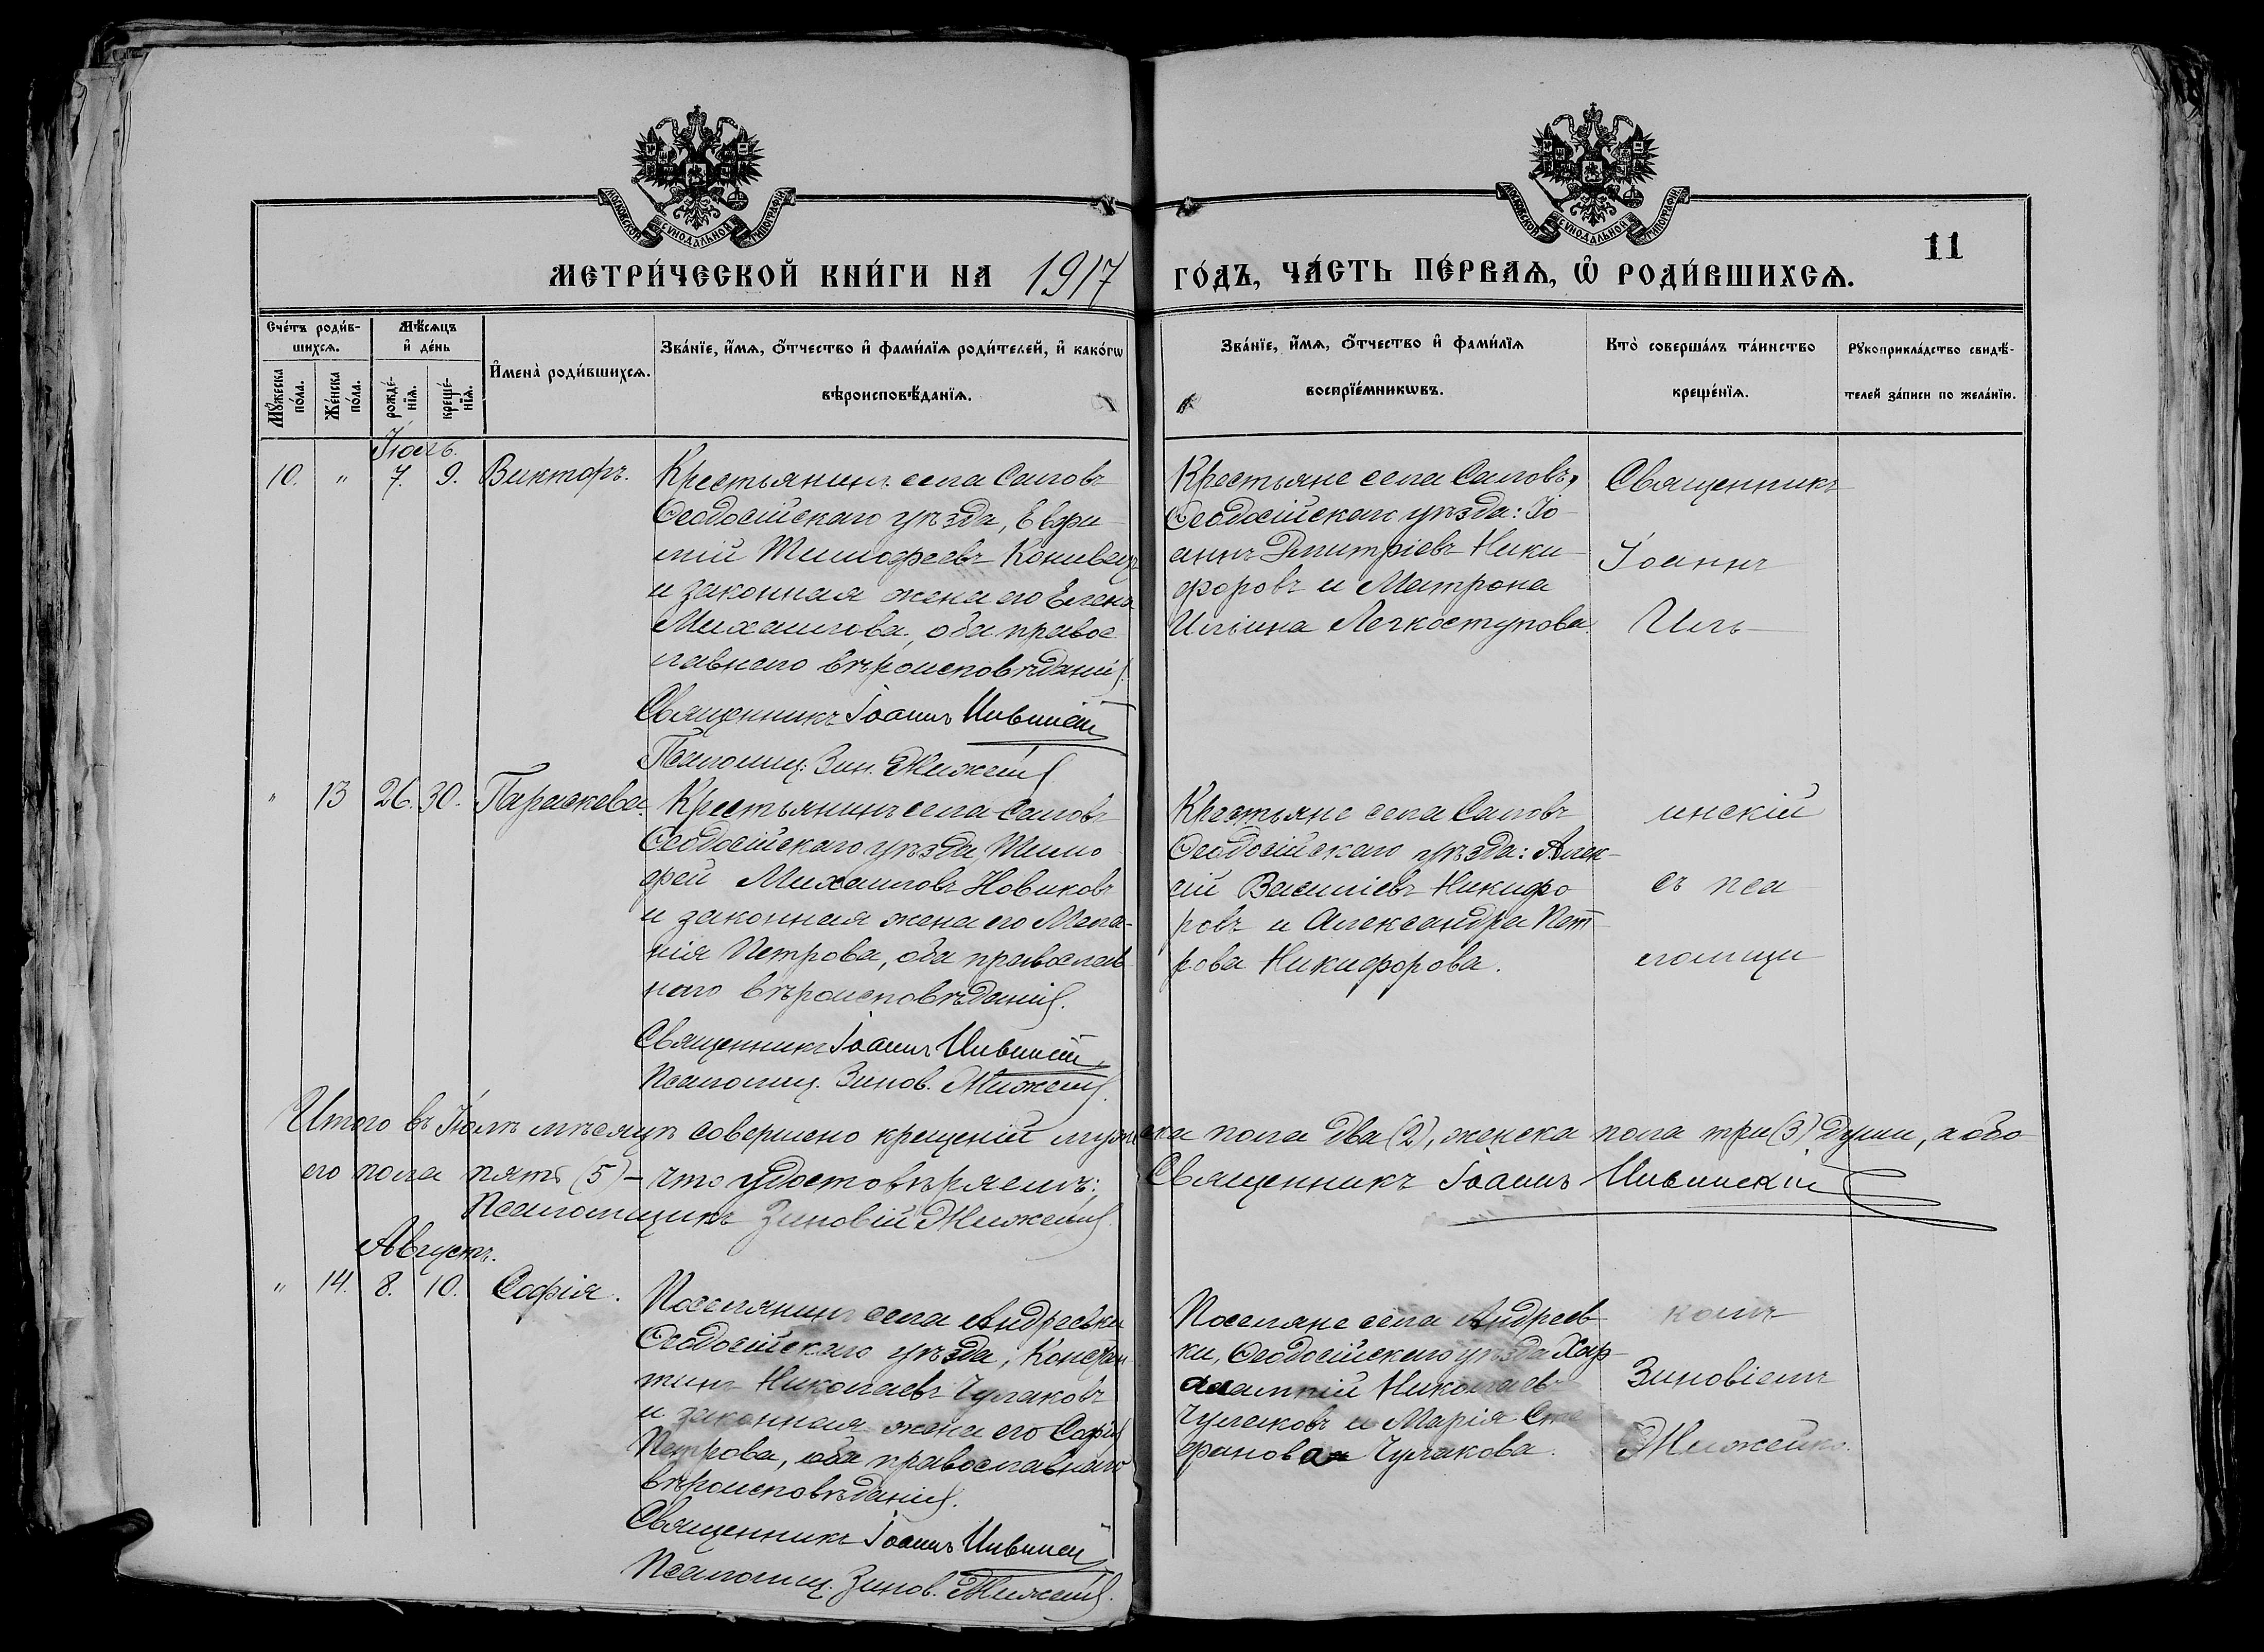 МОСКОВСКОЙ СѴНОДАЛЬНОЙ ТИПОГРАФІИ
МОСКОВСКОЙ СѴНОДАЛЬНОЙ ТИПОГРАФІИ
МЕТРИ́ЧЕСКОЙ КНИ́ГИ НА 1917 ГО́ДЪ, ЧА́СТЬ ПЕ́РВАѦ, Ѿ РОДИ́ВШИХСѦ.
11
Сче́тъ роди́в-
шихсѧ.
Мꙋ́жеска
по́ла.
Же́нска
по́ла.
Мѣ́сѧцъ
и҆ де́нь
рожде́-
нїѧ.
креще́-
нїѧ.
И҆мена̀ роди́вшихсѧ.
Зва́нїе, и҆́мѧ, ѻ҆́тчество и҆ фами́лїѧ роди́телей, и҆ како́гѡ
вѣроисповѣ́данїѧ.
Зва́нїе, и҆́мѧ, ѻ҆́тчество и҆ фами́лїѧ
воспрїе́мникѡвъ.
Кто̀ соверша́лъ та́инство
креще́нїѧ.
Рꙋкоприкла́дство свидѣ́-
телей за́писи по жела́нїю.
Іюль.
10. " 7. 9. Викторъ.
Крестьянинъ села Саловъ
Ѳеодосійскаго уѣзда, Евфи-
мій Тимофеевъ Коневецъ
и законная жена его Елена
Михаилова, оба право-
славнаго вѣроисповѣданія.
Священникъ Іоаннъ Ильинскій
Псаломщ: Зин. Жижейко
Крестьяне села Саловъ,
Ѳеодосійскаго уѣзда: Іо-
аннъ Дмитріевъ Ники-
форовъ и Матрона
Иліина Легкоступова.
Священникъ
Іоаннъ
Иль-
" 13 26. 30. Параскева.
Крестьянинъ села Саловъ
Ѳеодосійскаго уѣзда, Тимо-
фей Михаиловъ Новиковъ
и законная жена его Мела-
нія Петрова, оба православ-
наго вѣроисповѣданія.
Священникъ Іоаннъ Ильинскій
Псаломщ. Зинов. Жижейко
Крестьяне села Саловъ
Ѳеодосійскаго уѣзда: Алек-
сій Василіевъ Никифо-
ровъ и Александра Пет-
рова Никифорова.
инскій
съ пса-
ломщи-
Итого въ Іюлѣ мѣсяцѣ совершено крещеній мужеска пола два (2), женска пола три (3) души, а обо-
его пола пять (5) – что удостовѣряемъ: Священникъ Іоаннъ Ильинскій
Псаломщикъ Зиновій Жижейко
Августъ.
" 14. 8. 10. Софія.
Поселянинъ села Андреевки
Ѳеодосійскаго уѣзда, Констан-
тинъ Николаевъ Чулаковъ
и законная жена его Софія
Петрова, оба православнаго
вѣроисповѣданія.
Священникъ Іоаннъ Ильинскій
Псаломщ. Зинов. Жижейко
Поселяне села Андреев-
ки, Ѳеодосійскаго уѣзда Хар-
алампій Николаевъ
Чулаковъ и Марія Сте-
фанова Чулакова.
комъ
Зиновіемъ
Жижейко.